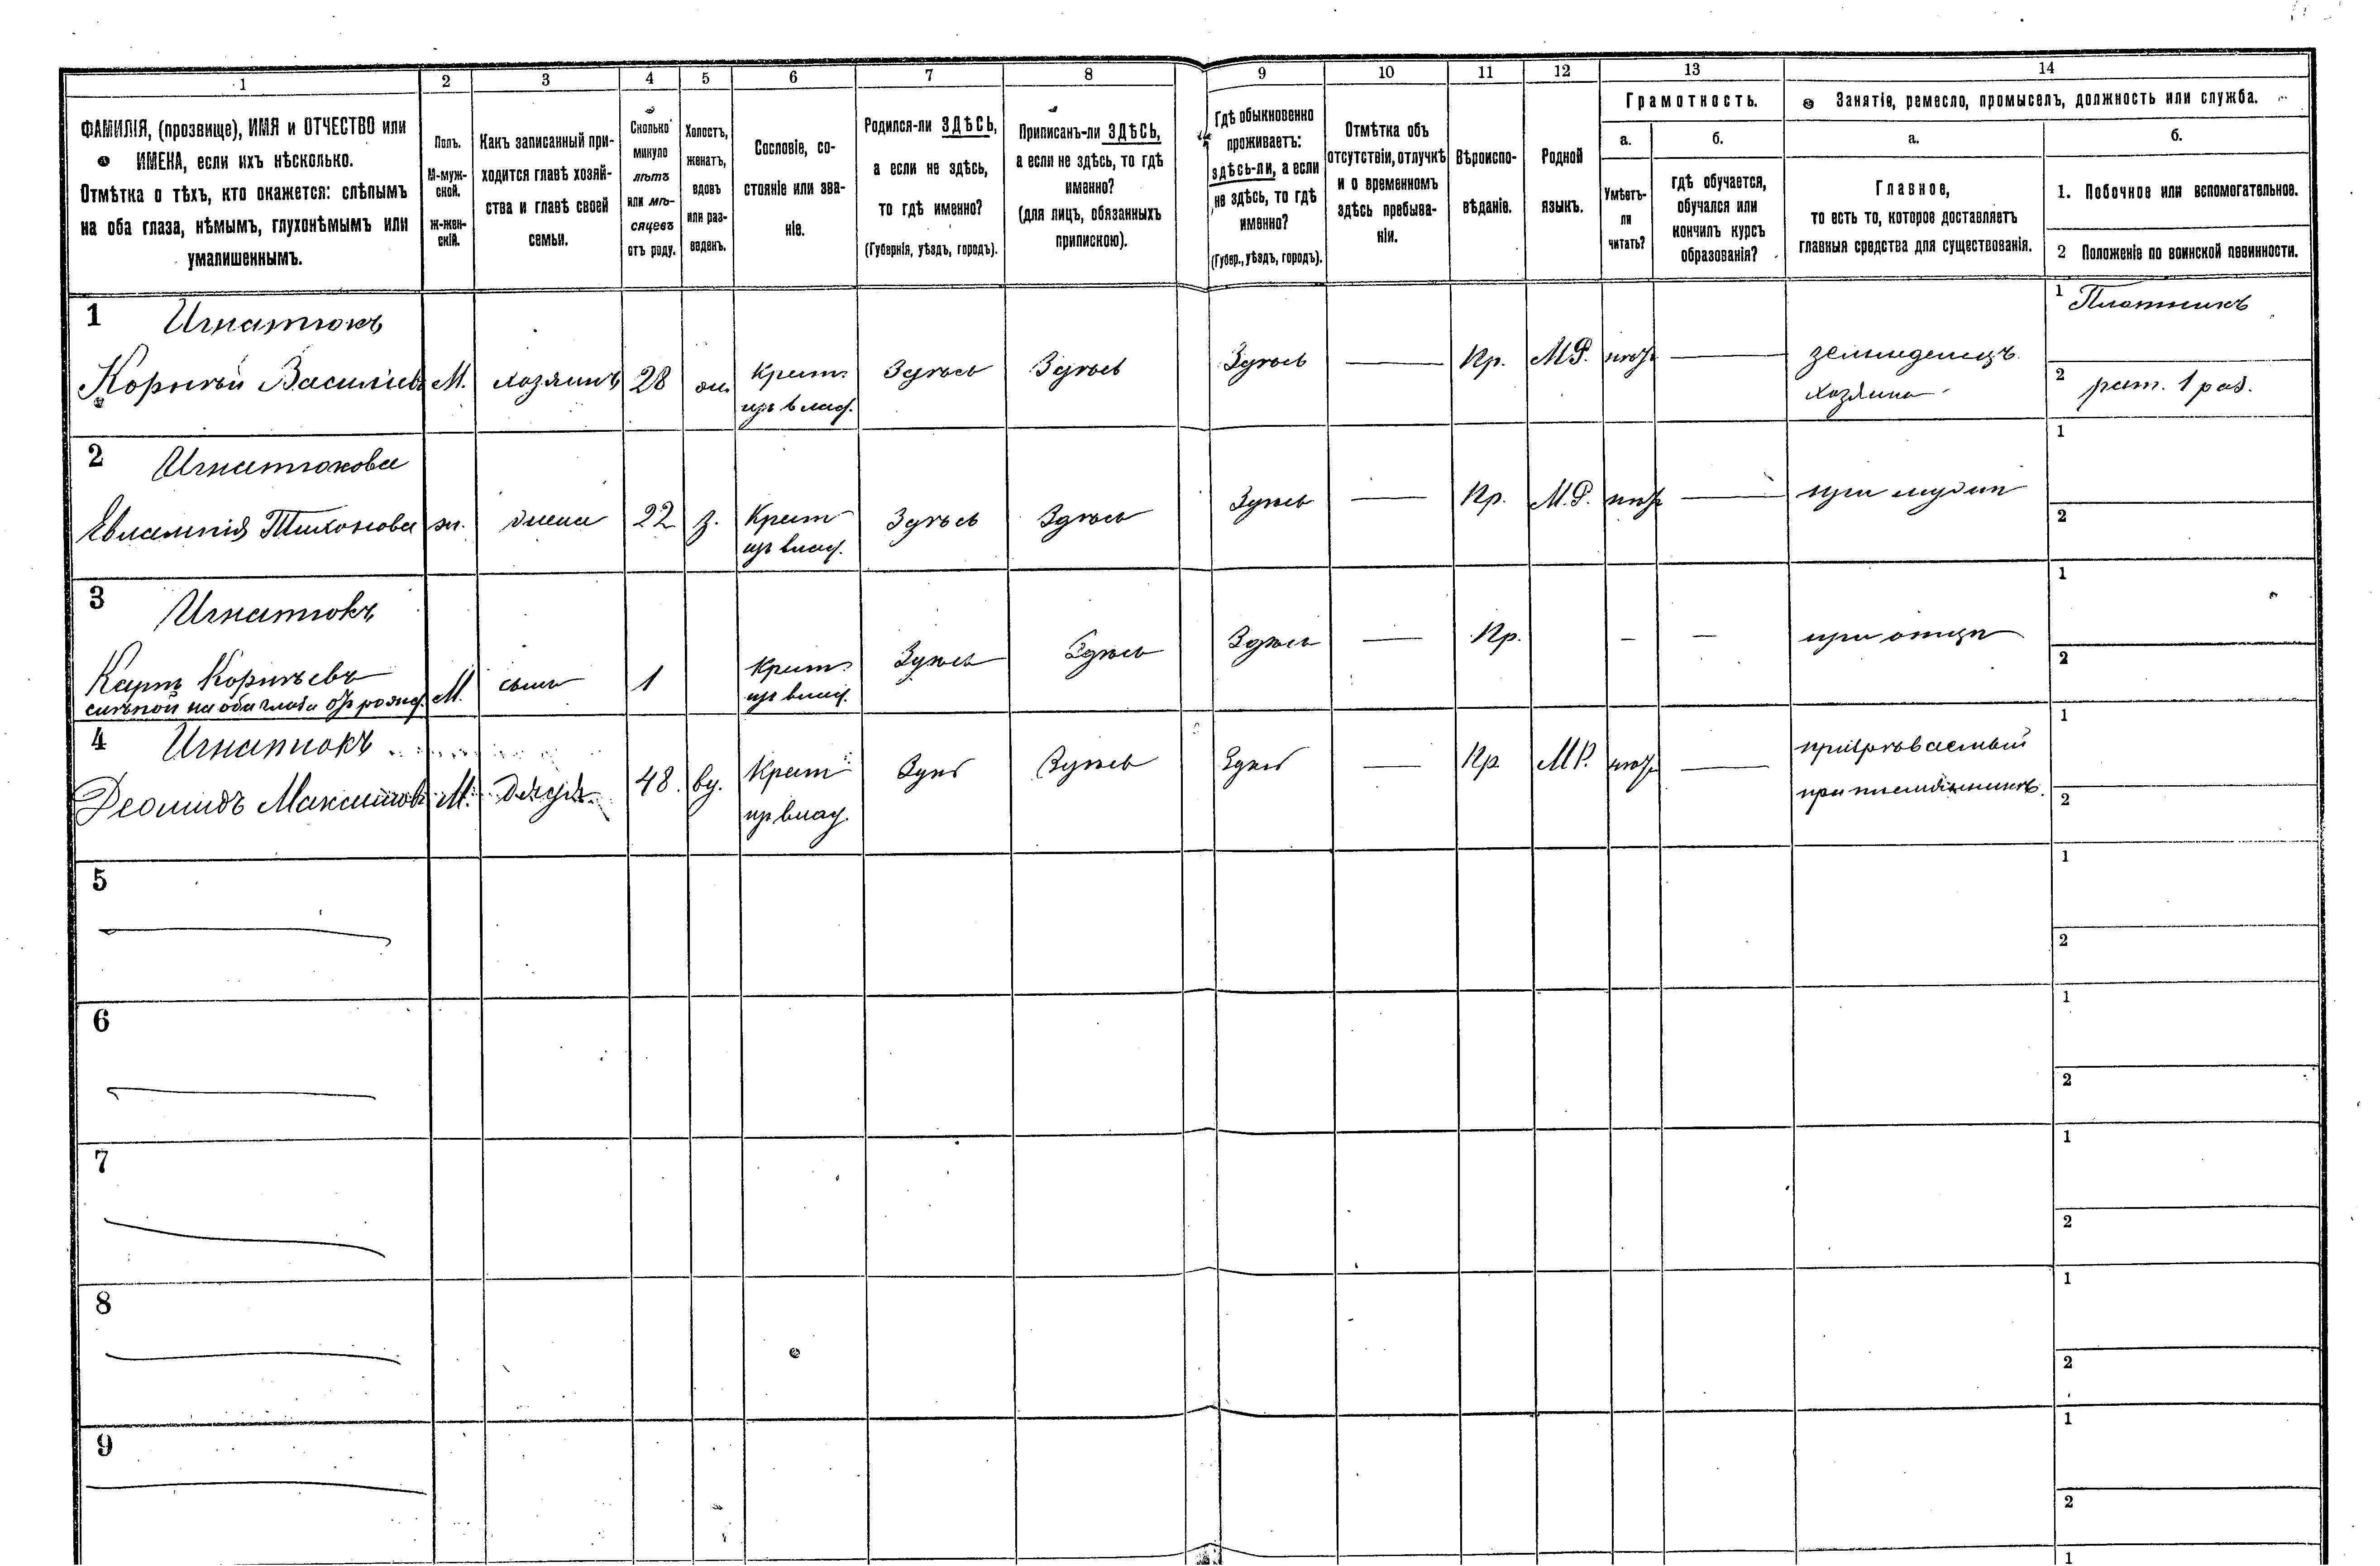 1 2 3 4 5 6 7 8 9 10 11 12 13 14
ФАМИЛІЯ, (прозвище), ИМЯ и ОТЧЕСТВО или
ИМЕНА, если ихъ нѣсколько.
Отмѣтка о тѣхъ, кто окажется: слѣпымъ
на оба глаза, нѣмымъ, глухонѣмымъ или
умалишеннымъ.
Полъ.
М-муж-
ской.
Ж-жен-
скій.
Какъ записанный при-
ходится главѣ хозяй-
ства и главѣ своей
семьи.
Сколько
минуло
лѣтъ
или мѣ-
сяцевъ
отъ роду.
Холостъ,
женатъ,
вдовъ
или раз-
веденъ.
Сословіе, со-
стояніе или зва-
ніе.
Родился-ли ЗДѢСЬ,
а если не здѣсь,
то гдѣ именно?
(Губернія, уѣздъ, городъ).
Приписанъ-ли ЗДѢСЬ,
а если не здѣсь, то гдѣ
именно?
(для лицъ, обязанныхъ
припискою).
Гдѣ обыкновенно
проживаетъ:
здѣсь-ли, а если
не здѣсь, то гдѣ
именно?
(Губер., уѣздъ, городъ).
Отмѣтка объ
отсутствіи, отлучкѣ
и о временномъ
здѣсь пребыва-
ніи.
Вѣроиспо-
вѣданіе.
Родной
языкъ.
Грамотность.
а.
Умѣетъ-
ли
читать?
б.
гдѣ обучается,
обучался или
кончилъ курсъ
образованія?
Занятіе, ремесло, промыселъ, должность или служба.
а.
Главное,
то есть то, которое доставляетъ
главныя средства для существованія.
б.
1. Побочное или вспомогательное.
2 Положеніе по воинской повинности.
1 Игнатюкъ
Корнѣй Василіевъ М. хозяинъ 28 жен. Крест. Здѣсь Здѣсь Здѣсь — Пр. М.Р. нѣтъ — земледелецъ
из влад. хозяинъ
1 Плотникъ
2 рат. 1 раз.
2 Игнатюкова
Евлампія Тихонова ж. жена 22 з. Крест Здѣсь Здѣсь Здѣсь — Пр. М.Р. нѣтъ — при мужѣ
из влад.
1
2
3 Игнатюкъ
Карпъ Корнѣевъ М. сынъ 1 Крест. Здѣсь Здѣсь Здѣсь — Пр. — — при отцѣ
слѣпой на оба глаза отъ рожд. из влад.
1
2
4 Игнатюкъ
Деомидъ Максимовъ М. Дядя. 48. вд. Крест Здѣсь Здѣсь Здѣсь — Пр М.Р. нѣтъ — призрѣваемый
из влад. при племянникѣ.
1
2
5
1
2
6
1
2
7
1
2
8
1
2
9
1
2
1